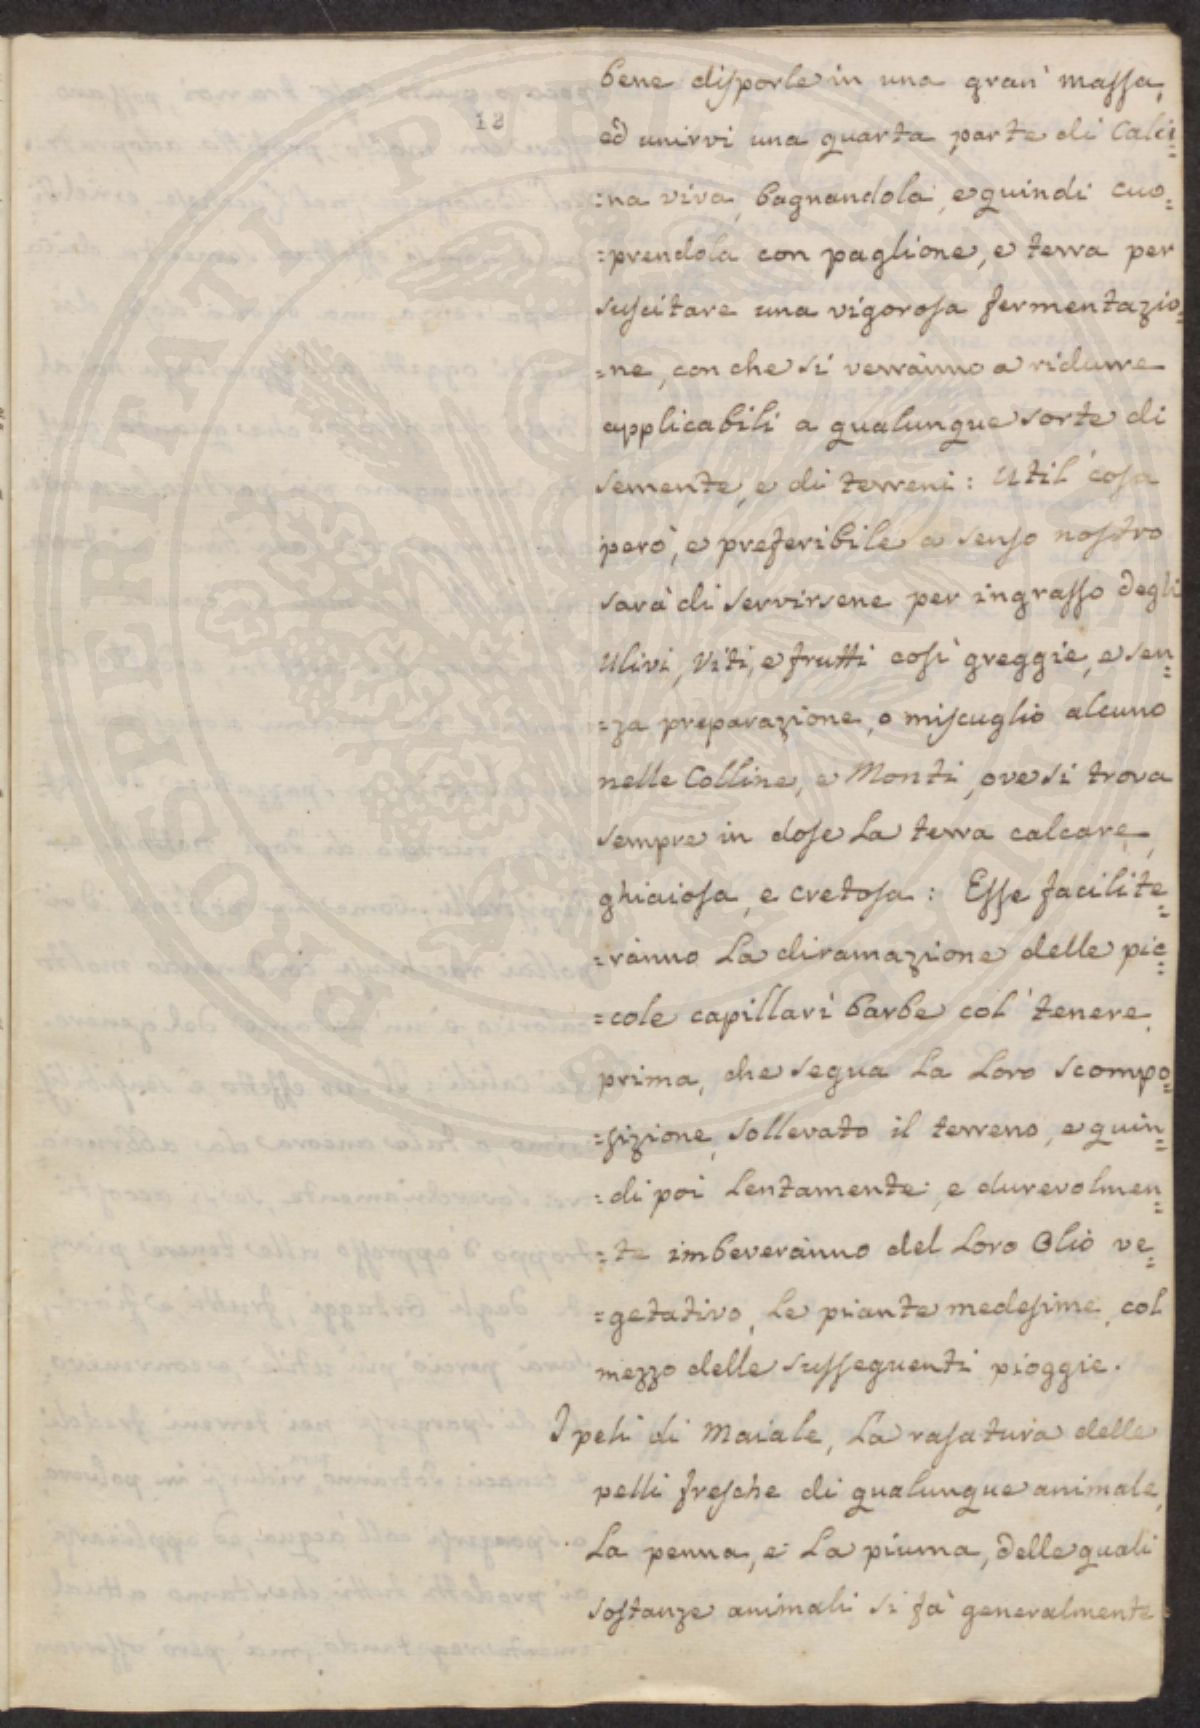 12
bene disporle in una gran' massa,
ed unirvi una quarta parte di Calci=
=na viva, bagnandola, e quindi cuo=
=prendola con paglione, e terra per
suscitare una vigorosa fermentazio=
=ne, con che si verranno a ridurre
applicabili a qualunque sorte di
semente, e di terreni: Util' cosa
però, e preferibile a senso nostro
sarà di servirsene per ingrasso degli
Ulivi, Viti, e frutti così greggie, e sen=
=za preparazione, o miscuglio alcuno
nelle Colline, e Monti, ove si trova
sempre in dose la terra calcare,
ghiaiosa, e cretosa: Esse facilite=
=ranno la diramazione delle pic=
=cole capillari barbe col' tenere,
prima, che segua la loro scompo=
=sizione, sollevato il terreno, e quin=
=di poi lentamente, e durevolmen=
=te imbeveranno del loro Olio ve=
=getativo, le piante medesime, col
mezzo delle susseguenti pioggie.
I peli di Maiale, la rasatura delle
pelli fresche di qualunque animale,
la penna, e la piuma, delle quali
sostanze animali si fà generalmente
PROSPERITATI PUBLICAE AUGENDAE